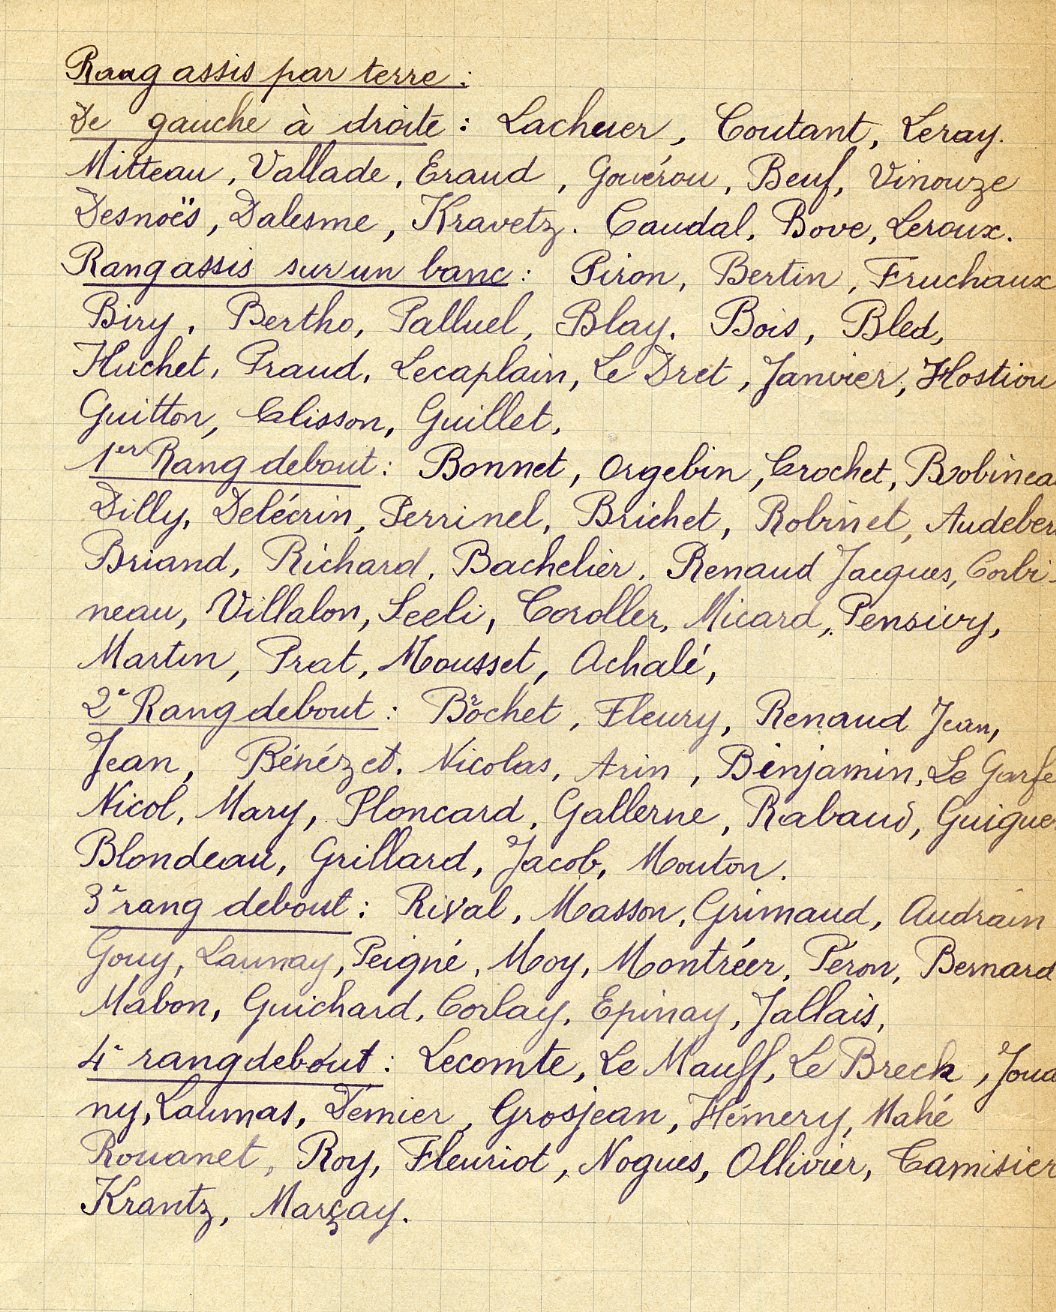 Rang assis par terre :
De gauche à droite : Lacheer, Coutant, Leray.
Mitteau, Vallade, Eraud, Gouérou, Beuf, Vinouze
Desnoës, Dalesme, Kravetz. Caudal, Bove, Leroux.
Rang assis sur un banc : Piron, Bertin, Fruchaux
Biry, Bertho, Palluel, Blay, Bois, Bled,
Huchet, Praud, Lecaplain, Le Dret, Janvier, Hostiou
Guitton, Clisson, Guillet,
1er Rang debout : Bonnet, Orgebin, Crochet, Bobineau
Dilly, Delécrin, Perrinel, Brichet, Robinet, Audeber
Briand, Richard, Bachelier, Renaud Jacques, Corbi-
neau, Villalon, Seeli, Coroller, Micard, Pensivy,
Martin, Prat, Mousset, Achalé,
2e Rang debout : Brochet, Fleury, Renaud Jean,
Jean, Bénézet, Nicolas, Arin, Benjamin, Le Garfe
Nicol, Mary, Ploncard, Gallerne, Rabaud, Guigue
Blondeau, Grillard, Jacob, Mouton.
3e rang debout : Rival, Masson, Grimaud, Audrain
Gouy, Launay, Peigné, Moy, Montréer, Péron, Bernard
Mabon, Guichard, Corlay, Epinay, Jallais,
4e rang debout : Lecomte, Le Mauff, Le Breck, Joua
ny, Laumas, Temier, Grosjean, Hémery, Mahé
Rouanet, Roy, Fleuriot, Nogues, Ollivier, Tamisier
Krantz, Marçay.